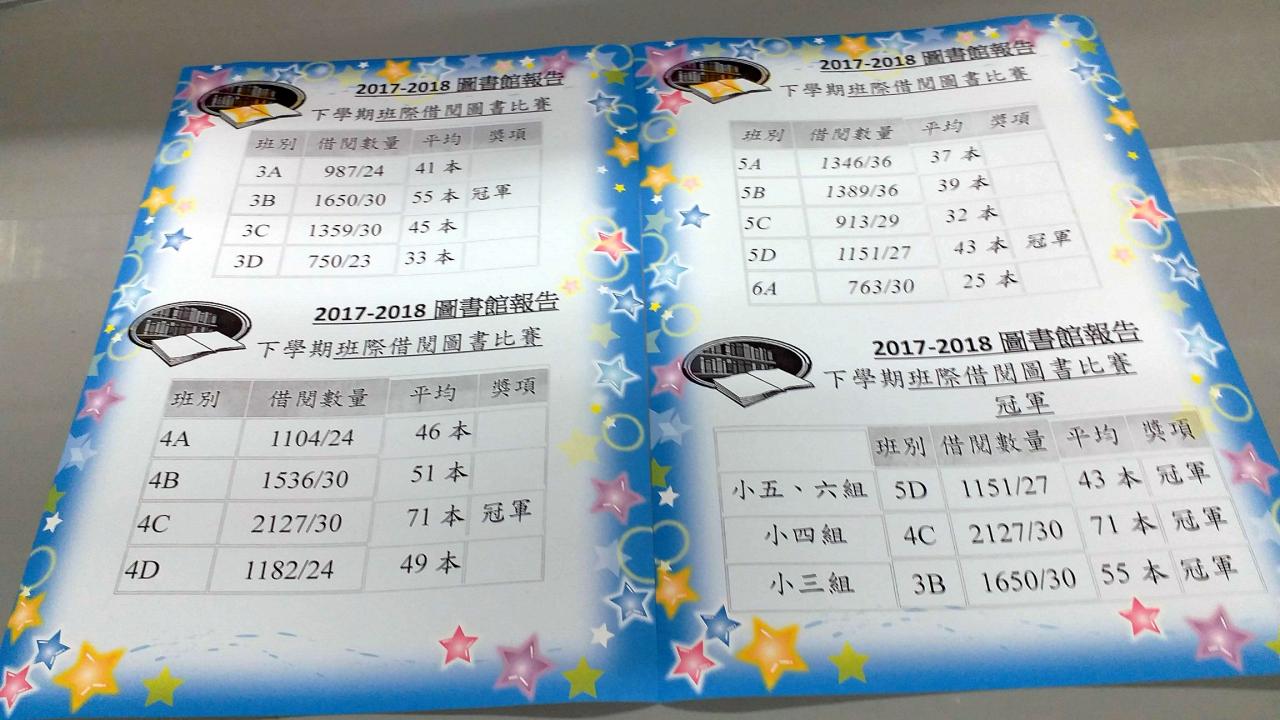 2017-2018 圖書館報告
下學期班際借閱圖書比賽
班別 借閱數量 平均 獎項
3A 987/24 41 本
3B 1650/30 55 本 冠軍
3C 1359/30 45 本
3D 750/23 33 本
2017-2018 圖書館報告
下學期班際借閱圖書比賽
班別 借閱數量 平均 獎項
4A 1104/24 46 本
4B 1536/30 51 本
4C 2127/30 71 本 冠軍
4D 1182/24 49 本
2017-2018 圖書館報告
下學期班際借閱圖書比賽
班別 借閱數量 平均 獎項
5A 1346/36 37 本
5B 1389/36 39 本
5C 913/29 32 本
5D 1151/27 43 本 冠軍
6A 763/30 25 本
2017-2018 圖書館報告
下學期班際借閱圖書比賽
冠軍
班別 借閱數量 平均 獎項
小五、六組 5D 1151/27 43 本 冠軍
小四組 4C 2127/30 71 本 冠軍
小三組 3B 1650/30 55 本 冠軍